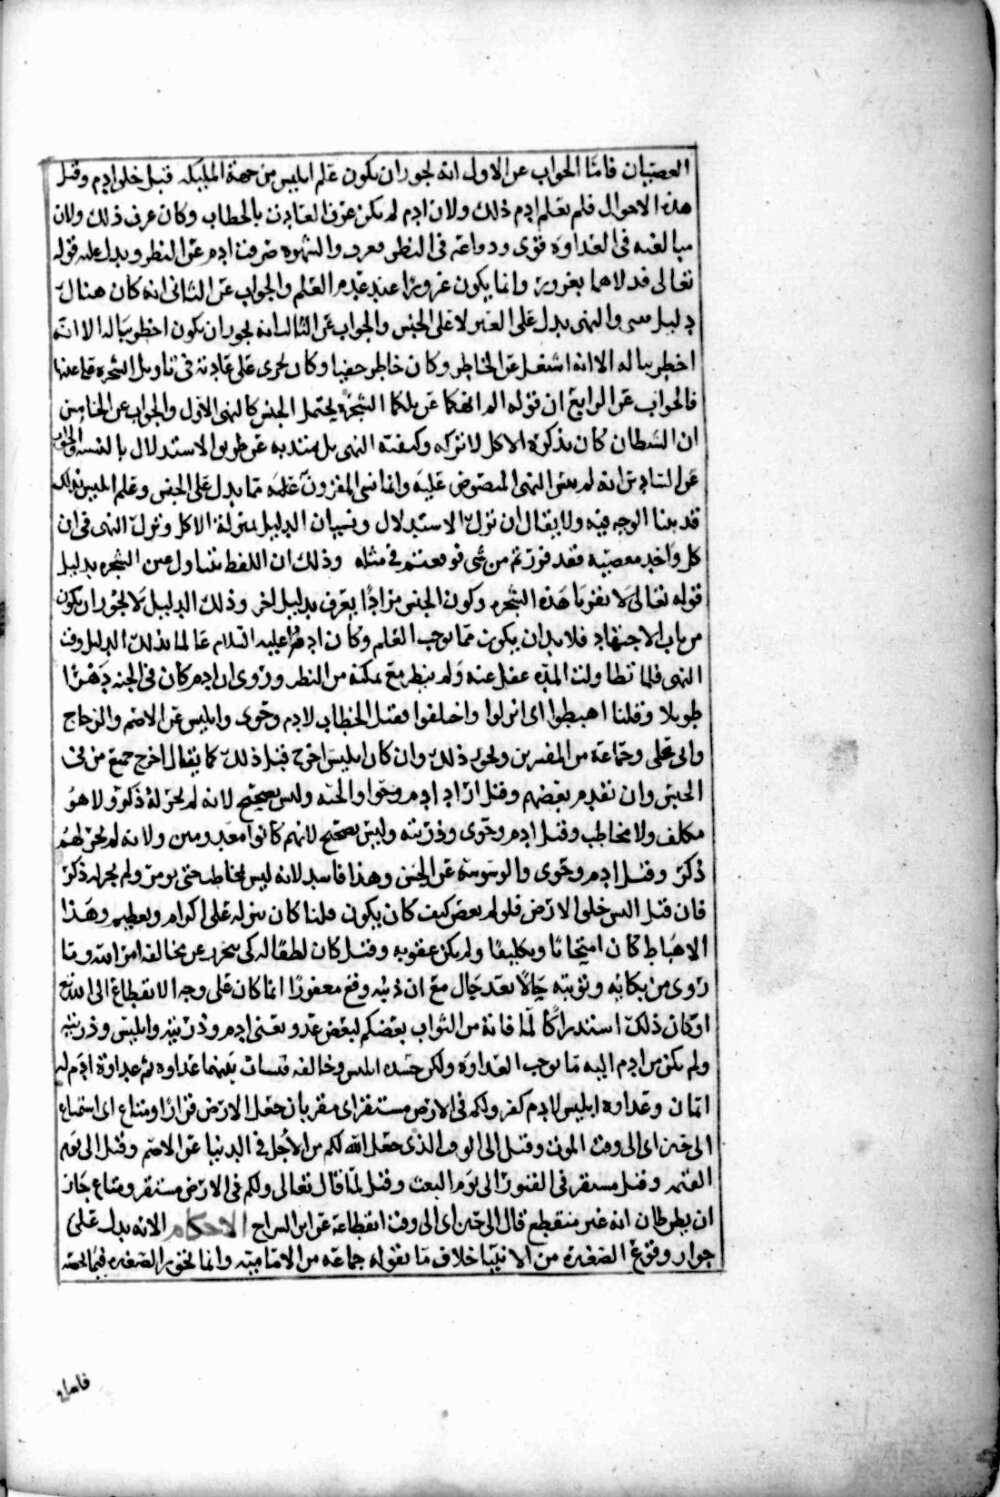 العصيان فاما الجواب عن الاول انه يجوز ان يكون علم ابليس من جهة الملىكه قبل خلق ادم وقبل
هذه الاحوال فلم يعلم ادم ذلك ولان ادم لم يكن عرف العادت بالخطاب وكان عرف ذلك ولان
مبالغته في العداوه قوي ودواعيه في النظر معرب والشهوه صرفت ادم عن النظر ويدل عليه قوله
تعالى فدلاهما بغرور وانما يكون غرورا عند عدم العلم والجواب عن الثاني انه كان هناك
دليل والنهي يدل على العين لا على الجنس والجواب عن الثالث انه يجوز ان يكون اخطر بباله الا انه
اخطر بباله الا انه اشتغل عن الخاطر وكان خاطر خفيا وكان يجرى على عادته في تاويل الشجره
فالجواب عن الرابع ان قوله الم انهكما عن تلكما الشجرة يحتمل الجنس كالنهي الاول والجواب عن الخامس
ان الشيطان كان يذكره الاكل لا تركه وكيفية النهي بل هنديه عن طريق الاستدلال بالنسيه والجواب
عن السادس انه لم ينس النهي المنصوص عليه وانما نسي المقرون عليه مما يدل على الجنس وعلم ابليس بذلك
قد بينا الوجه فيه ولا يقال ان ترك الاستدلال ونسيان الدليل بمنزلة الاكل وترك النهي في ان
كل واحد معصيه فقد فررتم من شى فوقعتم في مثله وذلك ان اللفظ يتناول عين الشجره بدليل
قوله تعالى لا تقربا هذه الشجره وكون الجنس مرادا يعرف بدليل اخر وذلك الدليل لا يجوز ان يكون
من باب الاجتهاد فلا بد ان يكون مما يوجب العلم وكان ادم عليه السلام عالما بذلك الدليل وقت
النهى فلما تطاولت المدة غفل عنه ولم ينظر مع تمكنه من النظر وروى ان ادم كان في الجنه دهرا
طويلا وقلنا اهبطوا اى انزلوا واختلفوا فقيل الخطاب لادم وحوى وابليس عن الاصم والزجاج
وابى على وجماعة من المفسرين ويجوز ذلك وان كان ابليس اخرج قبل ذلك كما يقال اخرج جميع من فى
الحبس وان تقدم بعضهم وقيل اراد ادم وحوا والحيه وليس بصحيح لانه لم يجز له ذكر ولا هو
مكلف ولا مخاطب وقيل ادم وحوى وذريته وليس بصحيح لانهم كانوا معدومين ولانه لم يجز لهم
ذكر وقيل ادم وحوى والوسوسة عن الحسن وهذا فاسد لانه ليس مخاطب حتى يومر ولم يجز له ذكر
فان قيل اليس خلق الارض فلو لم يعص كيف كان يكون قلنا كان ينزله على اكرام وتعظيم وهذا
الاهباط كان امتحانا وتكليفا ولم يكن عقوبه وقيل كان لطفا له كى يتحرز عن مخالفه امر الله وما
روى من بكائه وتوبته حالا بعد حال مع ان ذنبه وقع مغفورا انما كان على وجه الانقطاع الى الله تع
او كان ذلك استدراكا لما فاته من الثواب بعضكم لبعض عدو يعنى ادم وذريته وابليس وذريته
ولم يكن من ادم اليه ما يوجب العداوه ولكن حسده ابليس وخالفه فنشات بينهما عداوه ثم عداوة ادم له
ايمان وعداوه ابليس لادم كفر ولكم في الارض مستقر اى مقر بان جعل الارض قرارا ومتاع اى استمتاع
الى حين اى الى وقت الموت وقيل الى الوقت الذى جعل الله لكم من الاجل في الدنيا عن الاصم وقيل الى يوم
القيمه وقيل مستقر في القبور الى يوم البعث وقيل لما قال تعالى ولكم في الارض مستقر ومتاع جاز
ان يظن ظان انه غير منقطع قال الى حين اى الى وقت انقطاعه عن ابن السراج الاحكام الايه يدل على
جواز وقوع الصغيرة من الانبيا خلاف ما يقوله جماعه من الاماميه وانما يجوز الصغيره فيما يخصه
فاما